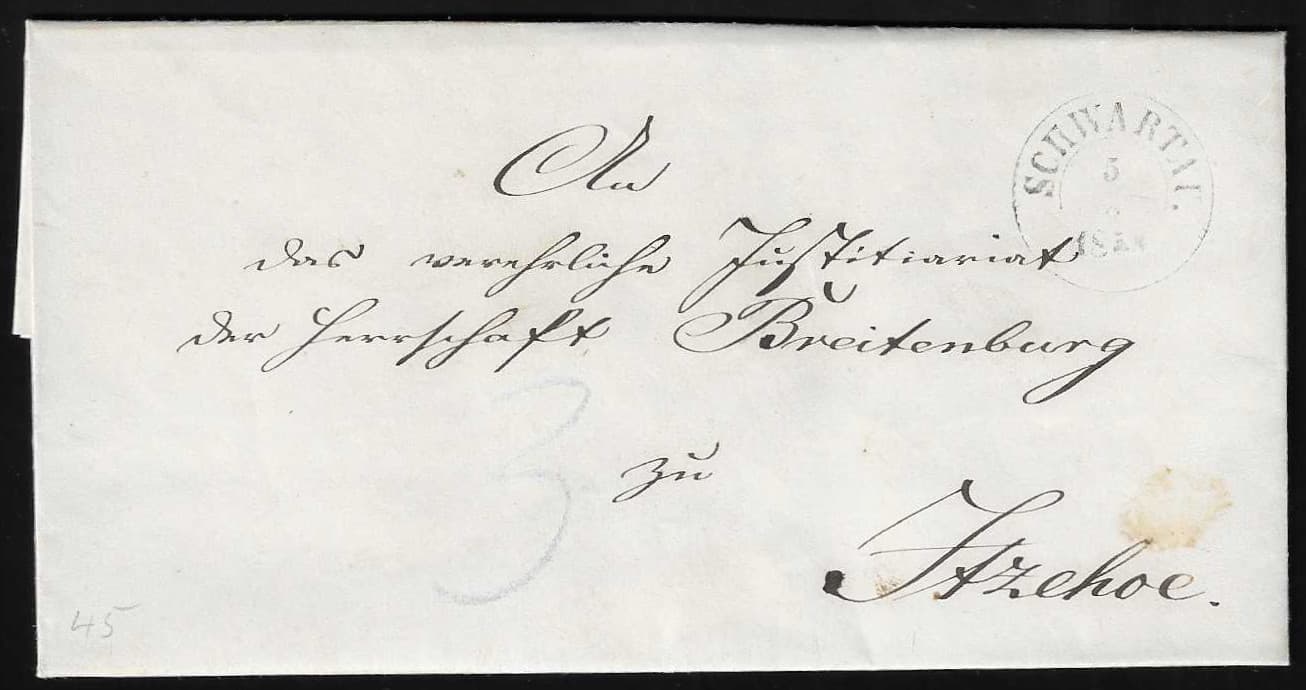 An
SCHWARTAU.
5
das verehrliche Justitiariat
der Herrschaft Breitenburg
3
zu
Itzehoe.
45